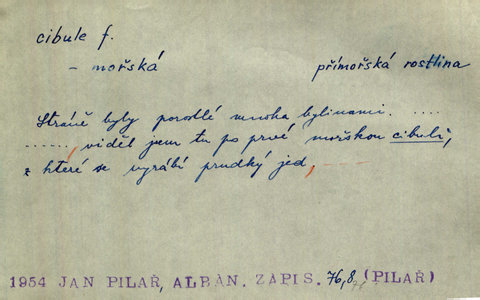 cibule f.
- mořská přímořská rostlina
Stráně byly porostlé mnoha bylinami. ....
......, viděl jsem tu po prvé mořskou cibuli,
z které se vyrábí prudký jed,
1954 JAN PILAŘ, ALBÁN. ZÁPIS. 76,8 (PILAŘ)